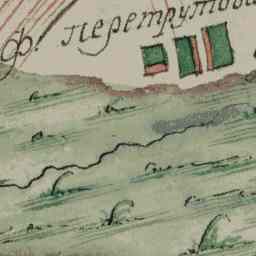 ф. перетрутова